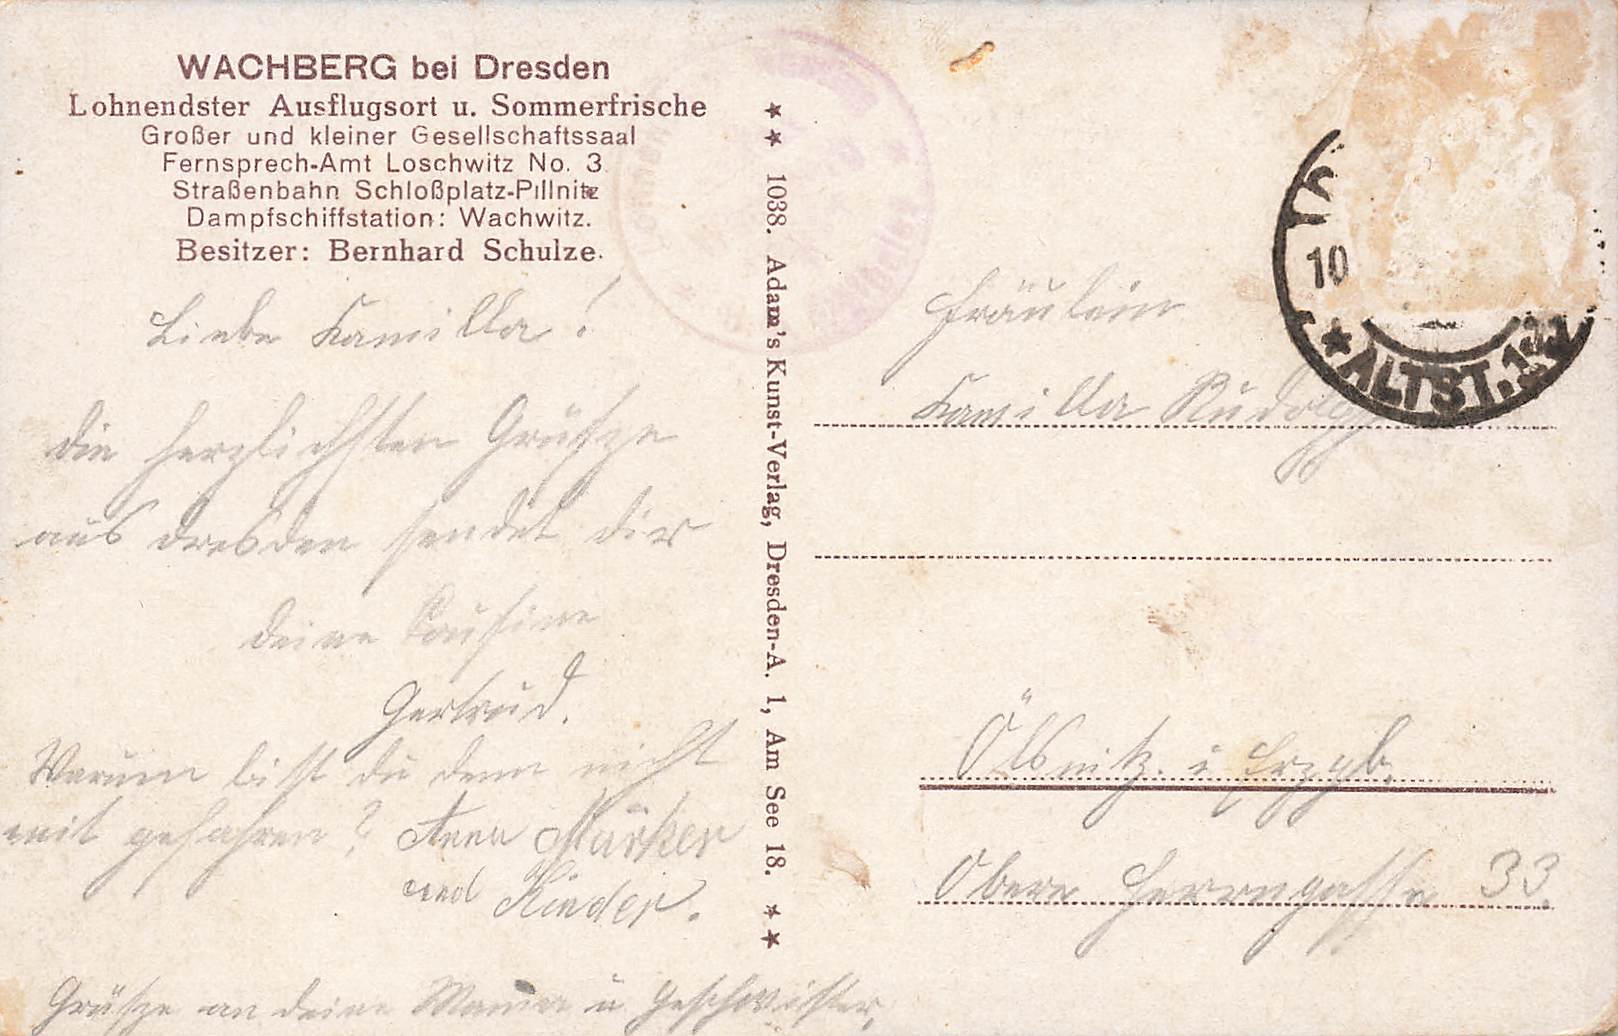 WACHBERG bei Dresden
Lohnendster Ausflugsort u. Sommerfrische
Großer und kleiner Gesellschaftssaal
Fernsprech-Amt Loschwitz No. 3
Straßenbahn Schloßplatz-Pillnitz
Dampfschiffstation: Wachwitz.
Besitzer: Bernhard Schulze.
Liebe Kamilla!
die herzlichsten Grüße
aus Dresden sendet dir
deine Cousine
Gertrud.
Warum bist du denn nicht
mit gefahren? Anna Märker
und Kinder.
Grüße an deine Mama u Geschwister.
★★ 1038. Adam's Kunst-Verlag, Dresden-A. 1, Am See 18. ★★
10
★ ALTST. 1
Fräulein
Kamilla Rudolph
Ölsnitz. i Erzgb.
Obere Herrngasse 33.